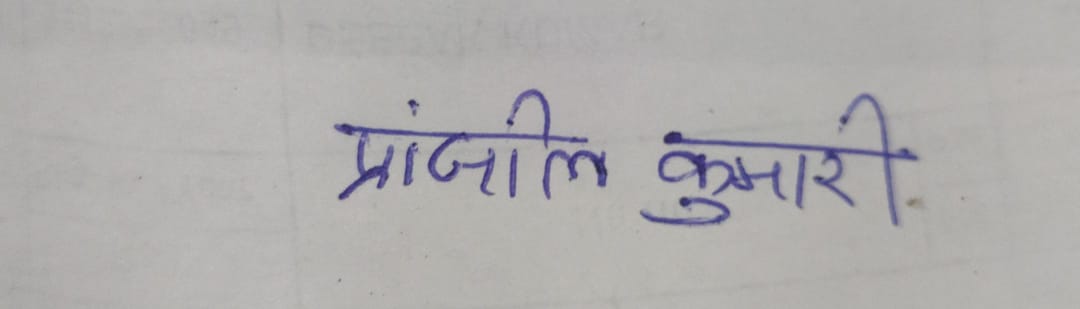 प्रांजलि कुमारी